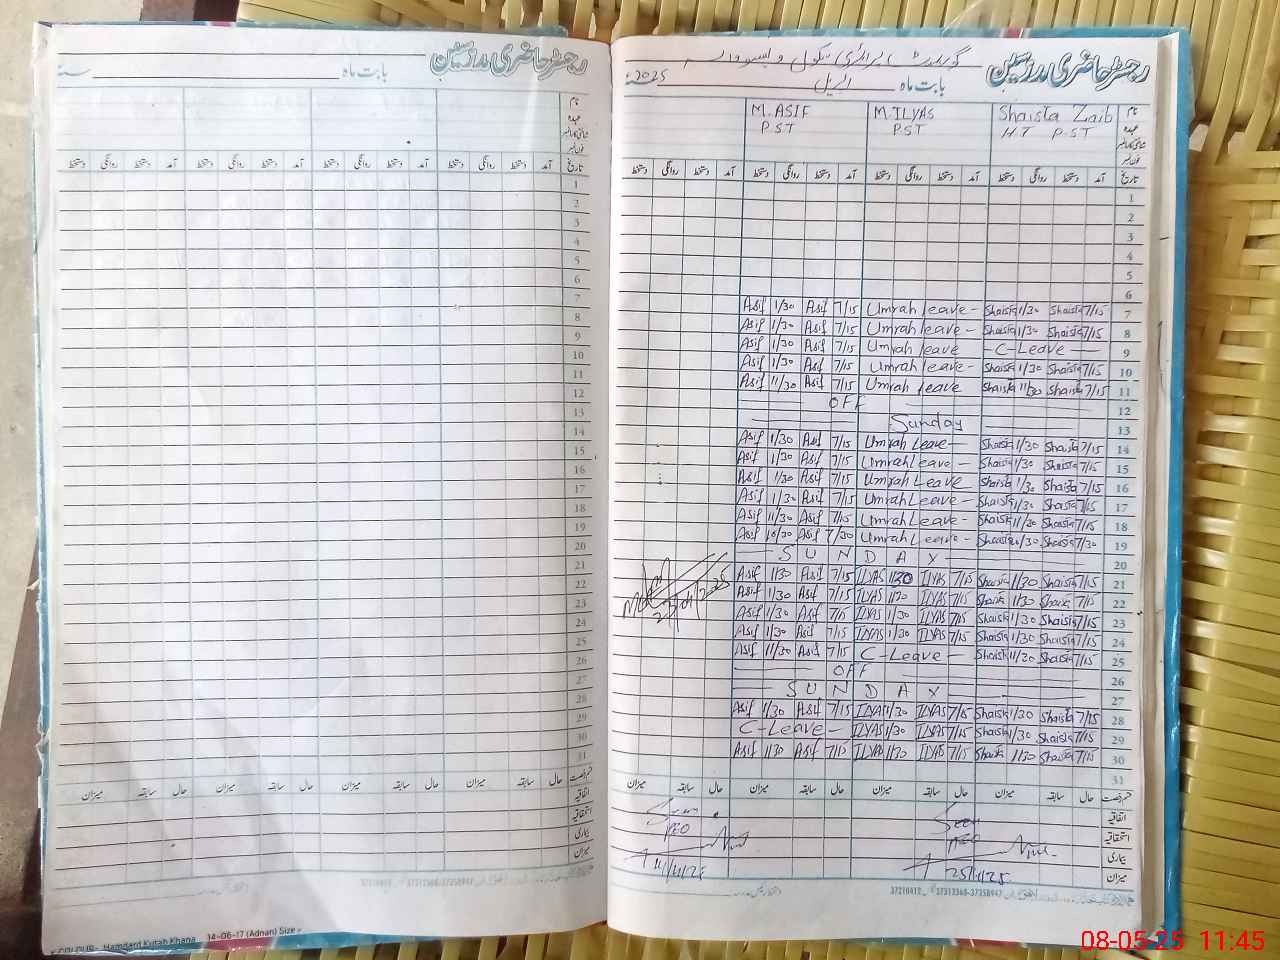 رجسٹر حاضری مدرسین
بابت ماہ سنہ
نام
عہدہ
شناختی کارڈ نمبر
فون نمبر
تاریخ آمد دستخط روانگی دستخط آمد دستخط روانگی دستخط آمد دستخط روانگی دستخط آمد دستخط روانگی دستخط
1
2
3
4
5
6
7
8
9
10
11
12
13
14
15
16
17
18
19
20
21
22
23
24
25
26
27
28
29
30
31
قسم رخصت حال سابقہ میزان حال سابقہ میزان حال سابقہ میزان حال سابقہ میزان
اتفاقیہ
استحقاقیہ
بیماری
میزان
37210412 37312368-37358947
Hamdard Kutab Khana 14-06-17 (Adnan) Size
رجسٹر حاضری مدرسین
گورنمنٹ پرائمری سکول
بابت ماہ اپریل سنہ 2025
نام Shaista Zaib M.ILYAS M.ASIF
عہدہ H.T PST PST P.ST
شناختی کارڈ نمبر
فون نمبر
تاریخ آمد دستخط روانگی دستخط آمد دستخط روانگی دستخط آمد دستخط روانگی دستخط آمد دستخط روانگی دستخط
1
2
3
4
5
6
Asif 1/30 Asif 7/15 Umrah leave - Shaista 1/30 Shaista 7/15 7
Asif 1/30 Asif 7/15 Umrah leave - Shaista 1/30 Shaista 7/15 8
Asif 1/30 Asif 7/15 Umrah leave - C-Leave - 9
Asif 1/30 Asif 7/15 Umrah leave - Shaista 1/30 Shaista 7/15 10
Asif 11/30 Asif 7/15 Umrah leave Shaista 11/30 Shaista 7/15 11
OFF 12
Sunday 13
Asif 1/30 Asif 7/15 Umrah Leave - Shaista 1/30 Shaista 7/15 14
Asif 1/30 Asif 7/15 Umrah Leave - Shaista 1/30 Shaista 7/15 15
Asif 1/30 Asif 7/15 Umrah Leave Shaista 1/30 Shaista 7/15 16
Asif 1/30 Asif 7/15 Umrah Leave - Shaista 1/30 Shaista 7/15 17
Asif 11/30 Asif 7/15 Umrah Leave - Shaista 11/30 Shaista 7/15 18
Asif 10/30 Asif 7/30 Umrah Leave - Shaista 10/30 Shaista 7/30 19
SUNDAY 20
Asif 1/30 Asif 7/15 ILYAS 1/30 ILYAS 7/15 Shaista 1/30 Shaista 7/15 21
Asif 1/30 Asif 7/15 ILYAS 1/30 ILYAS 7/15 Shaista 1/30 Shaista 7/15 22
Asif 1/30 Asif 7/15 ILYAS 1/30 ILYAS 7/15 Shaista 1/30 Shaista 7/15 23
Asif 1/30 Asif 7/15 ILYAS 1/30 ILYAS 7/15 Shaista 1/30 Shaista 7/15 24
Asif 11/30 Asif 7/15 C-Leave - Shaista 11/30 Shaista 7/15 25
OFF 26
SUNDAY 27
Asif 1/30 Asif 7/15 ILYAS 1/30 ILYAS 7/15 Shaista 1/30 Shaista 7/15 28
C-Leave - ILYAS 1/30 ILYAS 7/15 Shaista 1/30 Shaista 7/15 29
Asif 1/30 Asif 7/15 ILYAS 1/30 ILYAS 7/15 Shaista 1/30 Shaista 7/15 30
31
قسم رخصت حال سابقہ میزان حال سابقہ میزان حال سابقہ میزان حال سابقہ میزان
اتفاقیہ
استحقاقیہ
بیماری
میزان
37210412 37312368-37358947
08-05-25 11:45